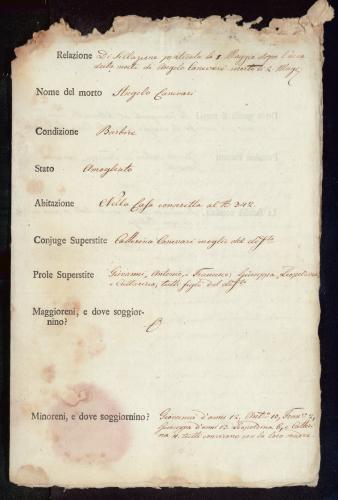 Relazione Di Relazione praticata li 1 Maggio dopo l'ora
della notte di Angelo Canevari morto li 2 Magg.
Nome del morto Angelo Canevari
Condizione Barbiere
Stato Amogliato
Abitazione Nella Casa al N 342.
Conjuge Superstite Catterina Canevari moglie del df.to
Prole Superstite Giovanni, Antonio, Francesco, Giuseppa, Leopoldina
e Catterina, tutti figli del df.to
Maggioreni, e dove soggior-
nino?
Minoreni, e dove soggiornino? Giovanni d'anni 12, Ant.o 10, Fran.co 7,
Giuseppa d'anni 13 Leopoldina 6, e Catteri
na 4. tutti con la loro madre.